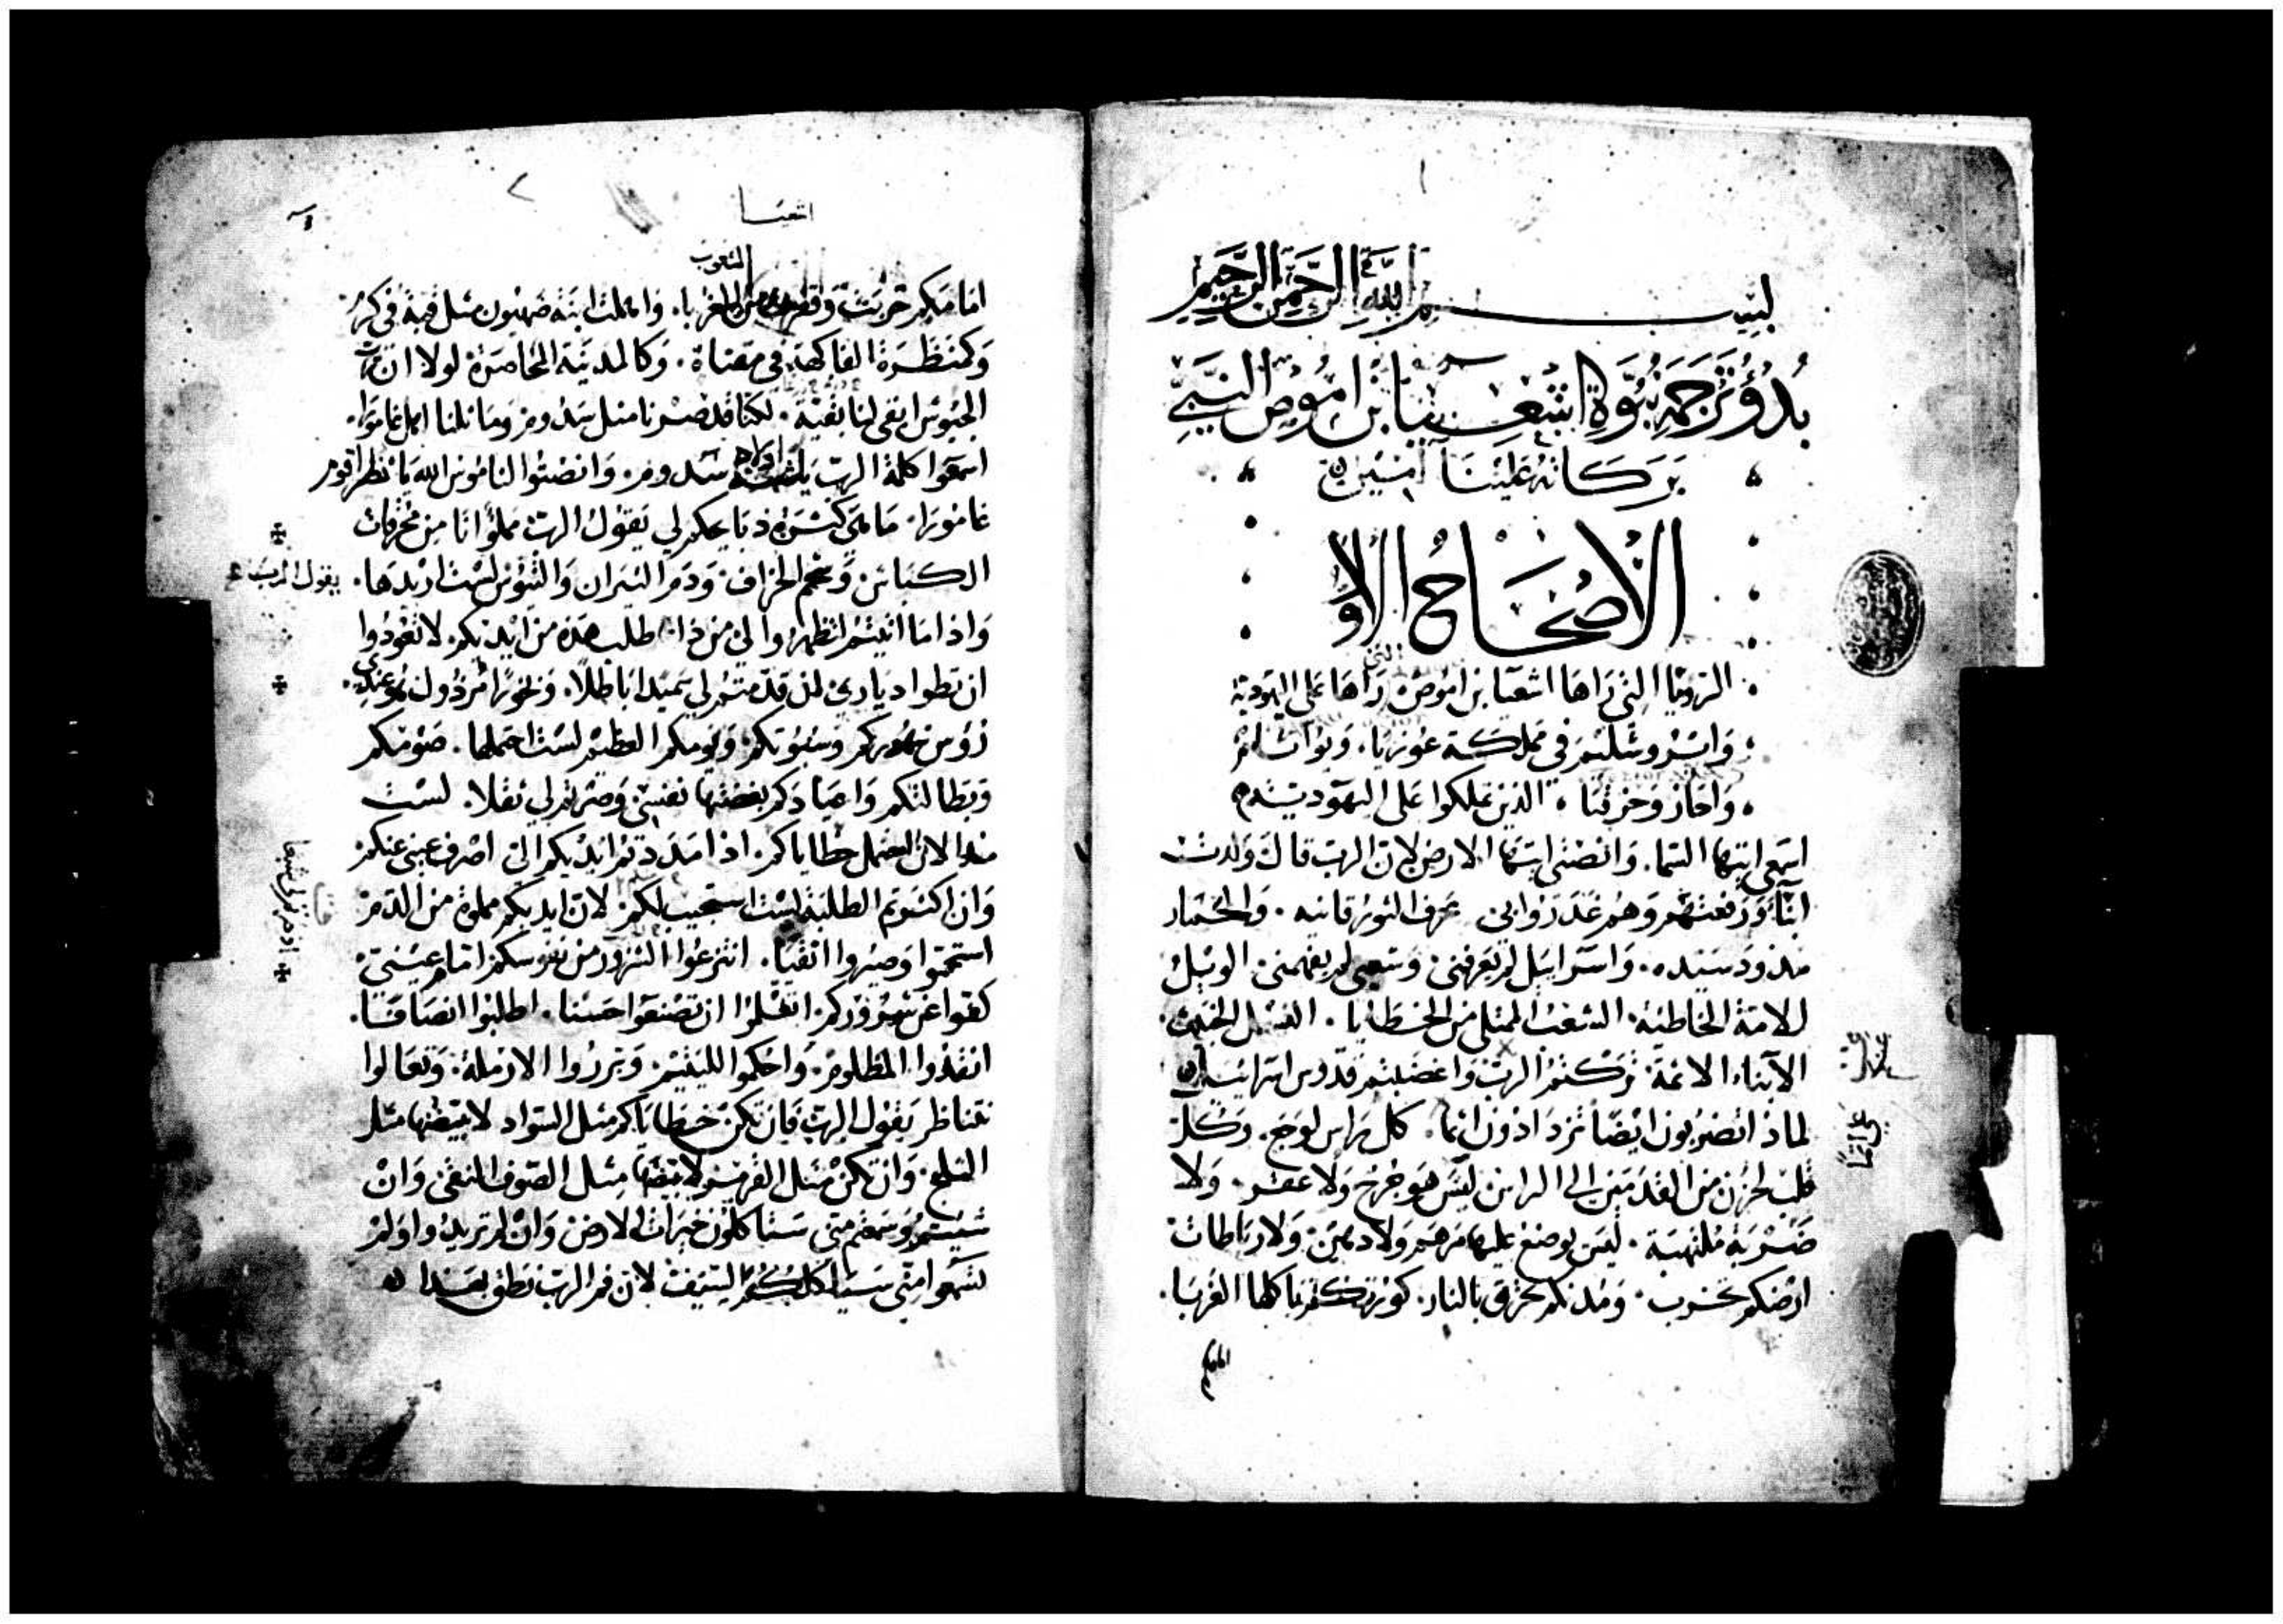 ١
بسم الله الرحمن الرحيم
بدؤ ترجمة نبوة اشعيا بن اموص النبي
بركاته علينا امين
الاصحاح الاول
الرويا التي راها اشعيا بن اموص التي راها على اليهودية
وايروشليم في مملكة عوزيا. ويواثام
واحاز وحزقيا، الذين تملكوا على اليهودية
اسمعي ايتها السما. وانصتي ايتها الارض لان الرب قال ولدت
ابناً ورفعتهم وهم غدروا بي عرف الثور قانيه. والحمار
مذود سيده. واسراييل لم يعرفني وشعبي لم يفهمني. الويل
للامة الخاطية. الشعب الممتلي من الخطايا. النسل الخبيث.
الابناء الاثمة تركتم الرب واغضبتم قدوس اسراييل
لماذا تضربون ايضاً تزدادون اثما. كل راس لوجع. وكل
قلب لحزن من القدمين الى الراس ليس هو جرح ولا عقر. ولا
ضربة ملتهبة. ليس يوضع عليها مرهم ولا دهن. ولا رباطات
ارضكم تخرب. ومدنكم تحرق بالنار. كورتكم ياكلها الغربا.
امامكم
٢
اشعيا
الشعوب
امامكم خربت وانقلبت من الغربا. واهملت ابنة صهيون مثل قبة في كرم
وكمنظرة الفاكهة في مقثاة. وكالمدينة المحاصرة لولا ان رب
الجيوش ابقى لنا بقية. لكنا قد صرنا مثل سدوم وماثلنا اهل غامورا.
اسمعوا كلمة الرب يا اولاة سدوم. وانصتوا لناموس الله يا قوم
غامورا. ما هي كثرة ذبايحكم لي يقول الرب مملؤ انا من محرقات
الكباش وشحم الخراف. ودم الثيران والتيوس لست اريدها.
يقول الرب
واذا ما اتيتم لتظهروا لي من ذا طلب هذه من ايديكم لا تعودوا
ان تطوا دياري لان قدمتم لي سميدا باطلاً. وبخورا مرذول هو عندي.
رؤوس شهوركم وسبوتكم. ويومكم العظيم لست احتملها. صومكم
وبطالتكم واعيادكم بغضتها نفسي وصرتم لي ثقلا. لست
منذ الان احتمل خطاياكم. اذا مددتم ايديكم الي اصرف عيني عنكم
وان اكثرتم الطلبة لست استجيب لكم. لان ايديكم مملوة من الدم
استحموا وصيروا انقيا. انتزعوا الشرور من نفوسكم امام عيني.
كفوا عن شروركم. اتعلموا ان تصنعوا حسنا. اطلبوا انصافا.
انقذوا المظلوم. واحكموا لليتيم. وبرروا الارملة. وتعالوا
نتناظر يقول الرب فان تكن خطاياكم مثل السواد لابيضها مثل
الثلج. وان تكن مثل القرمز لابيضها مثل الصوف النقي وان
شيتم وسمعتم مني ستاكلون خيرات الارض وان لم تريدوا ولم
تسمعوا مني سياكلكم السيف لان فم الرب نطق بهذا